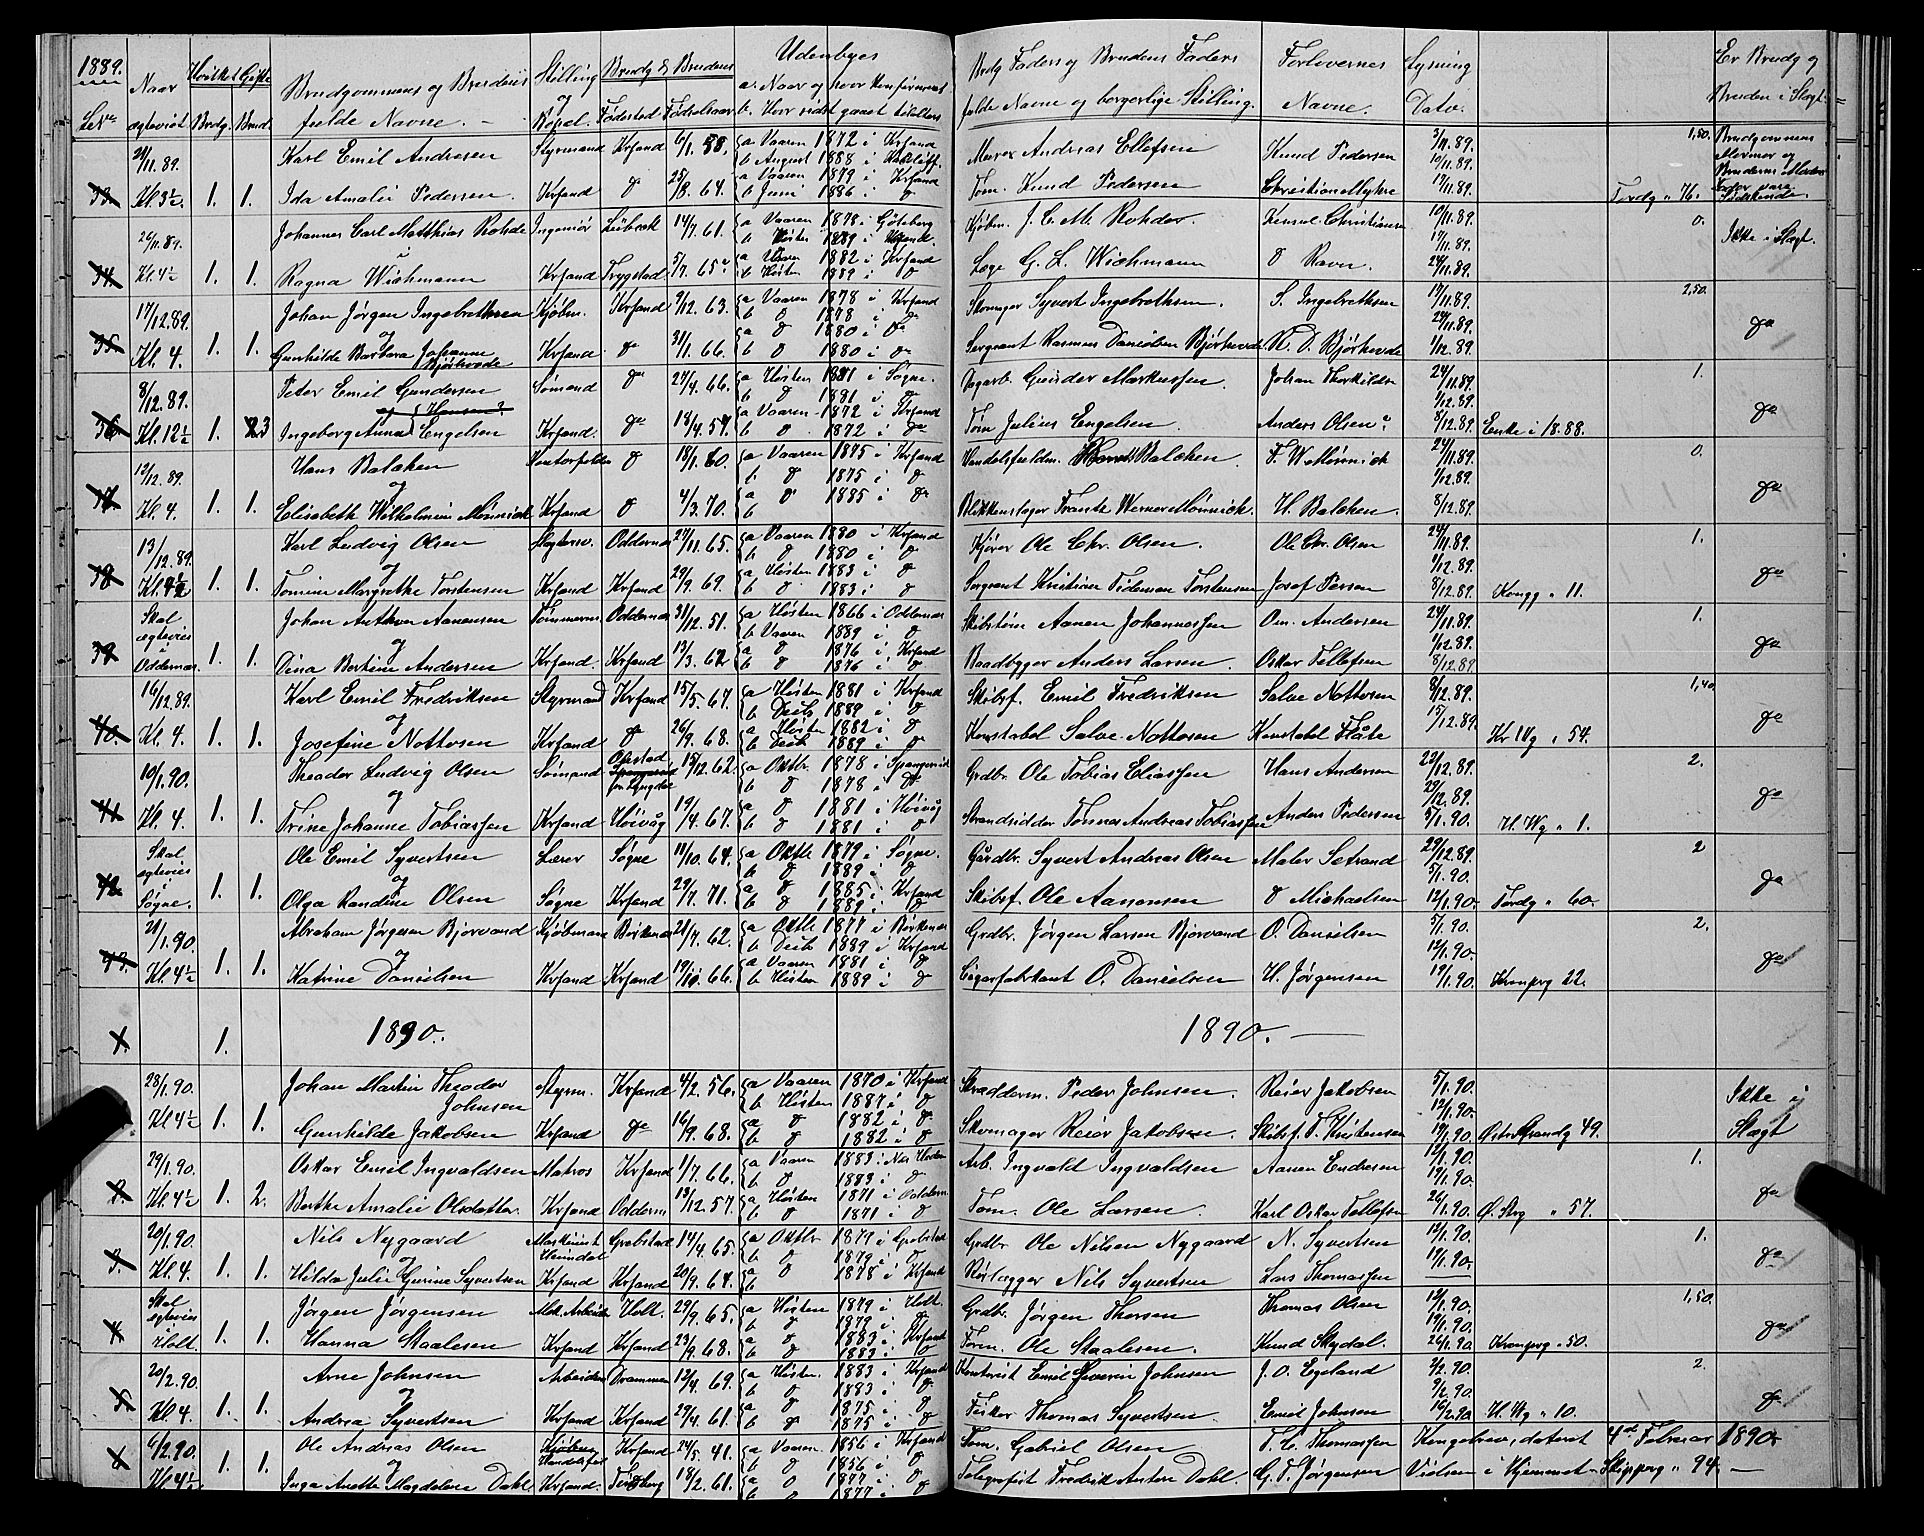 1889.
Naar
ægteviet
Hvilket Gifte
Brudg. Brud.
Brudgommens og Brudens
fulde Navne. —
Stilling
og
Bopæl.
Brudg & Brudens
Fødested Fødselsaar
Udenbyes
a. Naar og hvor konfirmeret
b. Hvor sidst gaaet til alters
Brdg Faders og Brudens Faders
fulde Navne og borgerlige Stilling.
Forlovernes
Navne.
Lysning
Dato.
Er Brudg og
Bruden i Slægt.
33. Kl. 3½. 1. 1.
Karl Emil Andresen Styrmand Krsand 6/1. 58. a Vaaren 1872 i Krsand
b August 1888 i
Ida Amalie Pedersen Krsand d 25/8. 64. a Vaaren 1879 i Krsand
b Juni 1886 i d
Murer Andreas Ellefsen Knud Pedersen 3/11.89. 1,50.
10/11.89.
Tøm. Knud Pedersen Christian Myhre 17/11.89. Tordg " 76.
Brudgommens
Mormor og
Brudens
vare
Sødskende.
26/11.89. Kl. 4½ 34. 1. 1.
Johannes Carl Matthias Rohde Ingeniør Lübeck 14/7. 61. a Vaaren 1878 i Göteborg
b Høsten 1889 i Krsand.
Ragna Wichmann Krsand Trygstad 5/7. 65. a Vaaren 1882 i Krsand
b Høsten 1889 i d
Kjøbm. J. C. M. Rohder Konsul Christiansen 10/11.89. 0.
17/11.89.
Læge G. L. Wichmann d Ravn. 24/11.89.
Ikke i Slægt.
17/12.89. Kl. 4. 35. 1. 1.
Johan Jørgen Ingebrethsen Kjøbm. Krsand 9/12. 63. a Vaaren 1878 i Krsand
og b d 1878 i do
Gunhilde Barbara Johanne Krsand do 31/1. 66. a d 1880 i do
Bjørkevde b d 1880 i do
Skomager Syvert Ingebrethsen. S. Ingebrethsen 17/11.89. 2,50.
24/11.89.
Sergeant Rasmus Danielsen Bjørkevde R. D. Bjørkevde 1/12.89. do
8/12.89. Kl. 12½ 36. 1. 3
Peter Emil Gundersen Sømand do 27/4. 66. a Høsten 1881 i Søgne.
og b d 1881 i d
Ingeborg Anna Engelsen Krsand. do 18/4. 57. a Vaaren 1872 i Krsand
b d 1872 i do
Opgarb. Gunder Markussen. Johan Thorkildsen 24/11.89. 1.
1/12.89.
Tøm Julius Engelsen. Anders Olsen 8/12.89. Enke i 1888. do
12/12.89. Kl. 4. 37. 1. 1.
Hans Balchen Kontorfuldm. d 18/1. 60. a Vaaren 1875 i Krsand
og b d 1875 i d
Elisabeth Wilhelmine Mönnich Krsand d 4/3. 70. a d 1885 i do
b
Handelsfuldm. Balchen. F. W. Mönnich 24/11.89. 0.
1/12.89.
Blikkenslager Frantz Werner Mönnich. H. Balchen. 8/12.89. do
13/12.89. Kl. 4½ 38. 1. 1.
Karl Ludvig Olsen Slagtersv. Oddernæs 27/11. 65. a Vaaren 1880 i Krsand
og b d 1880 i d
Tomine Margrethe Torstensen Krsand Krsand 29/9. 69. a Høsten 1883 i d
b d 1883 i d
Kjører Ole Chr. Olsen. Ole Chr. Olsen 24/11.89. 1.
1/12.89.
Sergeant Kristian Tideman Torstensen Josef Persen 8/12.89. Kongg " 11. do
Skal
ægtevies
i
Oddernæs. 39. 1. 1.
Johan Anthon Aanensen Tømmerm. Oddernæs 31/12. 51. a Høsten 1866 i Oddernæs
og b Vaaren 1889 i d
Dina Bertine Andersen Krsand. Krsand 13/3. 62. a d 1876 i Krsand
b d 1876 i d
Skibstøm Aanen Johannessen Om. Andersen 24/11.89. 1.
1/12.89.
Baadbygger Anders Larsen. Oskar Tellefsen 8/12.89. do
16/12.89. Kl. 4. 40. 1. 1.
Karl Emil Fredriksen Styrmand Krsand 15/5. 67. a Høsten 1881 i Krsand
og b Decb 1889 i d
Josefine Nottosen Krsand d 26/9. 68. a Høsten 1882 i d
b Decb 1889 i d
Skibsf. Emil Fredriksen Salve Nottosen 8/12.89. 1,40.
Konstabel Salve Nottosen Konstabel Flåte 15/12.89. Kr Vg " 54. do
10/1.90. Kl. 4. 41. 1. 1.
Theodor Ludvig Olsen Sømand 15/12. 62. a Oktbr. 1878 i Spangereid
og b d 1878 i do
Trine Johanne Tobiassen Krsand Høivåg 19/4. 67. a d 1881 i Høivåg
b d 1881 i d
Grdbr. Ole Tobias Eliassen Hans Andersen 22/12.89. 2.
29/12.89.
Strandsidder Tønnes Andreas Tobiassen Anders Pedersen 5/1.90. H. Vg " 1. do
Skal
ægtevies
i
Søgne. 42. 1. 1.
Ole Emil Syvertsen Lærer Søgne 11/10. 64. a Oktb 1879 i Søgne.
og b d 1889 i d
Olga Randine Olsen Søgne Krsand 29/7. 71. a d 1885 i Krsand
b d 1889 i d
Gårdbr. Syvert Andreas Olsen Maler Setrand 29/12.89. 2
5/1.90.
Skibsf. Ole Aanonsen d Michaelsen 12/1.90. Tordg " 60. do
21/1.90. Kl. 4½ 43. 1. 1.
Abraham Jørgesen Bjorvand Kjøbmand Birkenæs 28/7. 62. a Oktb 1877 i Birkenæs
og b Decb 1889 i Krsand
Katrine Danielsen Krsand Krsand 19/10. 66. a Vaaren 1881 i d
b Høsten 1889 i d
Grdbr. Jørgen Larsen Bjorvand O. Danielsen 5/1.90. 2.
12/1.90.
Cigarfabrikant O. Danielsen H. Jørgensen 19/1.90. Kronprg 22. do
1. 1890. 1890. —
28/1.90. Kl 4½ 1. 1.
Johan Martin Theodor Styrm. Krsand 4/2. 56. a Vaaren 1870 i Krsand
Johnsen b Høsten 1887 i d
Gunhilde Jakobsen Krsand do 16/9. 68. a d 1882 i do
b d 1882 i d
Skrædderm. Peder Johnsen. Reier Jakobsen 5/1.90.
12/1.90.
Skomager Reier Jakobsen. Skibsf. T. Kristensen 19/1.90. Østre Strandg 49.
Ikke i
Slægt
29/1.90. Kl. 4½ 2. 1. 2.
Oskar Emil Ingvaldsen Matros Krsand 1/7. 66. a Vaaren 1883 i
b d 1883 i d
Berthe Amalie Olsdatter. Krsand Oddern 13/12. 57. a Høsten 1871 i Oddern.
b d 1871 i d
Arb. Ingvald Ingvaldsen Aanen Endresen 12/1.90. 1.
19/1.90.
Tøm. Ole Larsen. Karl Oskar Tellefsen 26/1.90. Ø. Strg " 57. do
20/1.90. Kl. 4. 3. 1. 1.
Nils Nygaard Maskinist Grebstad 14/4. 65. a Oktbr 1879 i Grebstad
og b d 1879 i
Hilda Julie Gurine Syvertsen Krsand Krsand 20/9. 64. a d 1878 i Krsand
b
Grdbr. Ole Nilsen Nygaard N. Syvertsen 12/1.90. 1.
Rørlægger Nils Syvertsen Lars Thomassen 19/1.90. do
Skal
ægtevies
i Holt. 4. 1. 1.
Jørgen Jørgensen Mek. Arbeider Holt. 29/9. 65. a Høsten 1879 i Holt.
b d 1879 i do
Hanna Staalesen Krsand Krsand 23/9. 68. a d 1883 i Krsand
b d 1883 i d
Grdbr. Jørgen Thorsen Thomas Olsen 12/1.90. 1,50.
19/1.90.
Tøm. Ole Staalesen. Knud Skydal. 26/1.90. Kronprg " 50. do
20/2.90. Kl. 4. 5. 1. 1.
Arne Johnsen Arbeider Drammen 12/4. 69. a Høsten. 1883 i Krsand
og b d 1883 i do
Andrea Syvertsen Krsand Krsand 29/4. 61. a d 1875 i d
b d 1875 i d
Kontorist Emil Severin Johnsen J. O. Egeland 2/2.90. 2.
9/2.90.
Fisker Thomas Syvertsen. Emil Johnsen 16/2.90. H. Vg " 10. do
6/2.90. Kl. 4½. 6 1. 1.
Ole Andreas Olsen Krsand 24/5. 41. a Vaaren. 1856 i Krsand
og b d 1856 i d
Inga Anette Magdalene Dahl Krsand. 18/2. 61. a d 1877 i d
b d 1877 i d
Tøm. Gabriel Olsen T. C. Thomassen Kongebrev, dateret 4de Februar 1890.
Telegrafist Fredrik Anton Dahl. G. T. Jørgensen Vielsen i Hjemmet – Skipperg " 94 —